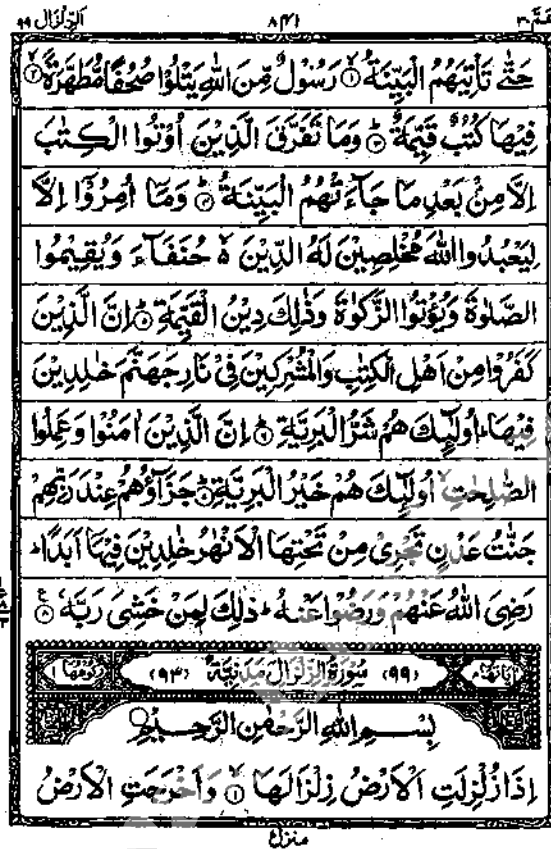 عم ٣٠ ٨٤١ الزلزال ٩٩
حَتّٰى تَاْتِیَهُمُ الْبَیِّنَةُ ۙ﴿۱﴾ رَسُوْلٌ مِّنَ اللّٰهِ یَتْلُوْا صُحُفًا مُّطَهَّرَةً ۙ﴿۲﴾
فِیْهَا كُتُبٌ قَیِّمَةٌ ؕ﴿۳﴾ وَمَا تَفَرَّقَ الَّذِیْنَ اُوْتُوا الْكِتٰبَ
اِلَّا مِنْۢ بَعْدِ مَا جَآءَتْهُمُ الْبَیِّنَةُ ؕ﴿۴﴾ وَمَاۤ اُمِرُوْۤا اِلَّا
لِیَعْبُدُوا اللّٰهَ مُخْلِصِیْنَ لَهُ الدِّیْنَ ۙ۬ حُنَفَآءَ وَیُقِیْمُوا
الصَّلٰوةَ وَیُؤْتُوا الزَّكٰوةَ وَذٰلِكَ دِیْنُ الْقَیِّمَةِ ؕ﴿۵﴾ اِنَّ الَّذِیْنَ
كَفَرُوْا مِنْ اَهْلِ الْكِتٰبِ وَالْمُشْرِكِیْنَ فِیْ نَارِ جَهَنَّمَ خٰلِدِیْنَ
فِیْهَا ؕ اُولٰٓئِكَ هُمْ شَرُّ الْبَرِیَّةِ ؕ﴿۶﴾ اِنَّ الَّذِیْنَ اٰمَنُوْا وَعَمِلُوا
الصّٰلِحٰتِ ۙ اُولٰٓئِكَ هُمْ خَیْرُ الْبَرِیَّةِ ؕ﴿۷﴾ جَزَآؤُهُمْ عِنْدَ رَبِّهِمْ
جَنّٰتُ عَدْنٍ تَجْرِیْ مِنْ تَحْتِهَا الْاَنْهٰرُ خٰلِدِیْنَ فِیْهَاۤ اَبَدًا ؕ
رَضِیَ اللّٰهُ عَنْهُمْ وَرَضُوْا عَنْهُ ؕ ذٰلِكَ لِمَنْ خَشِیَ رَبَّهٗ ﴿۸﴾
اٰیَاتُهَا ۸ (۹۹) سُوْرَةُ الزِّلْزَالِ مَدَنِیَّةٌ (۹۳) رُكُوْعُهَا ۱
بِسْمِ اللّٰهِ الرَّحْمٰنِ الرَّحِیْمِ
اِذَا زُلْزِلَتِ الْاَرْضُ زِلْزَالَهَا ۙ﴿۱﴾ وَاَخْرَجَتِ الْاَرْضُ
منزل